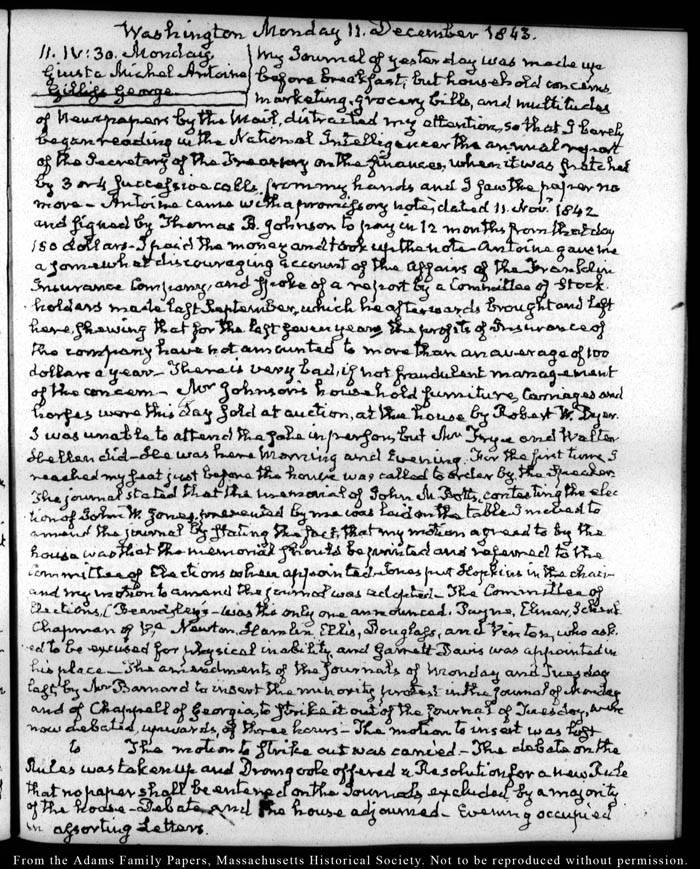 Washington Monday 11. December 1843.
11. IV:30. Monday
Giusta Michel Antoine
Gilliss George
My Journal of yesterday was made up
before breakfast, but household concerns
marketing, grocery bills, and multitudes
of Newspapers by the Mail, distracted my attention, so that I barely
began reading in the National Intelligencer the annual report
of the Secretary of the Treasury on the finances, when it was snatched
by 3 or 4 successive calls from my hands and I saw the paper no
more – Antoine came with a promissory note, dated 11. Novr. 1842
and signed by Thomas B. Johnson to pay in 12 months from that day
150 dollars – I paid the money and took up the note – Antoine gave me
a somewhat discouraging account of the affairs of the Franklin
Insurance Company, and spoke of a report by a Committee of Stock
holders made last September, which he afterwards brought and left
here, shewing that for the last seven years the profits of Insurance of
the company have not amounted to more than an average of 100
dollars a year – There is very bad, if not fraudulent management
of the concern – Mr Johnson's household furniture, Carriages and
horses were this day sold at auction, at the house by Robert W. Dyer.
I was unable to attend the sale in person, but Mr Frye and Walter
Hellen did – He was here Morning and Evening. For the first time I
reached my seat just before the house was called to order by the Speaker
The journal stated that the memorial of John M. Botts, contesting the elec
tion of John W. Jones, presented by me was laid on the table I moved to
amend the journal by stating the fact, that my motion agreed to by the
house was that the memorial should be printed and referred to the
Committee of Elections when appointed – Jones put Hopkins in the chair
and my motion to amend the journal was adopted – The Committee of
Elections, (Beardsley's) was the only one announced. Payne, Elmer, Schenk
Chapman of Va Newton, Hamlin, Ellis, Douglass, and Vinton, who ask
ed to be excused for physical inability and Garrett Davis was appointed in
his place – The amendments of the Journals of Monday and Tuesday
last, by Mr Barnard to insert the minority protest in the Journal of Monday
and of Chappell of Georgia, to strike it out of the Journal of Tuesday, were
now debated, upwards, of three hours – The motion to insert was lost
to The motion to strike out was carried – The debate on the
Rules was taken up and Dromgoole offered a Resolution for a new Rule
that no paper shall be entered on the Journals, excluded by a majority
of the house – Debate, and the house adjourned – Evening occupied
in assorting Letters.
From the Adams Family Papers, Massachusetts Historical Society. Not to be reproduced without permission.